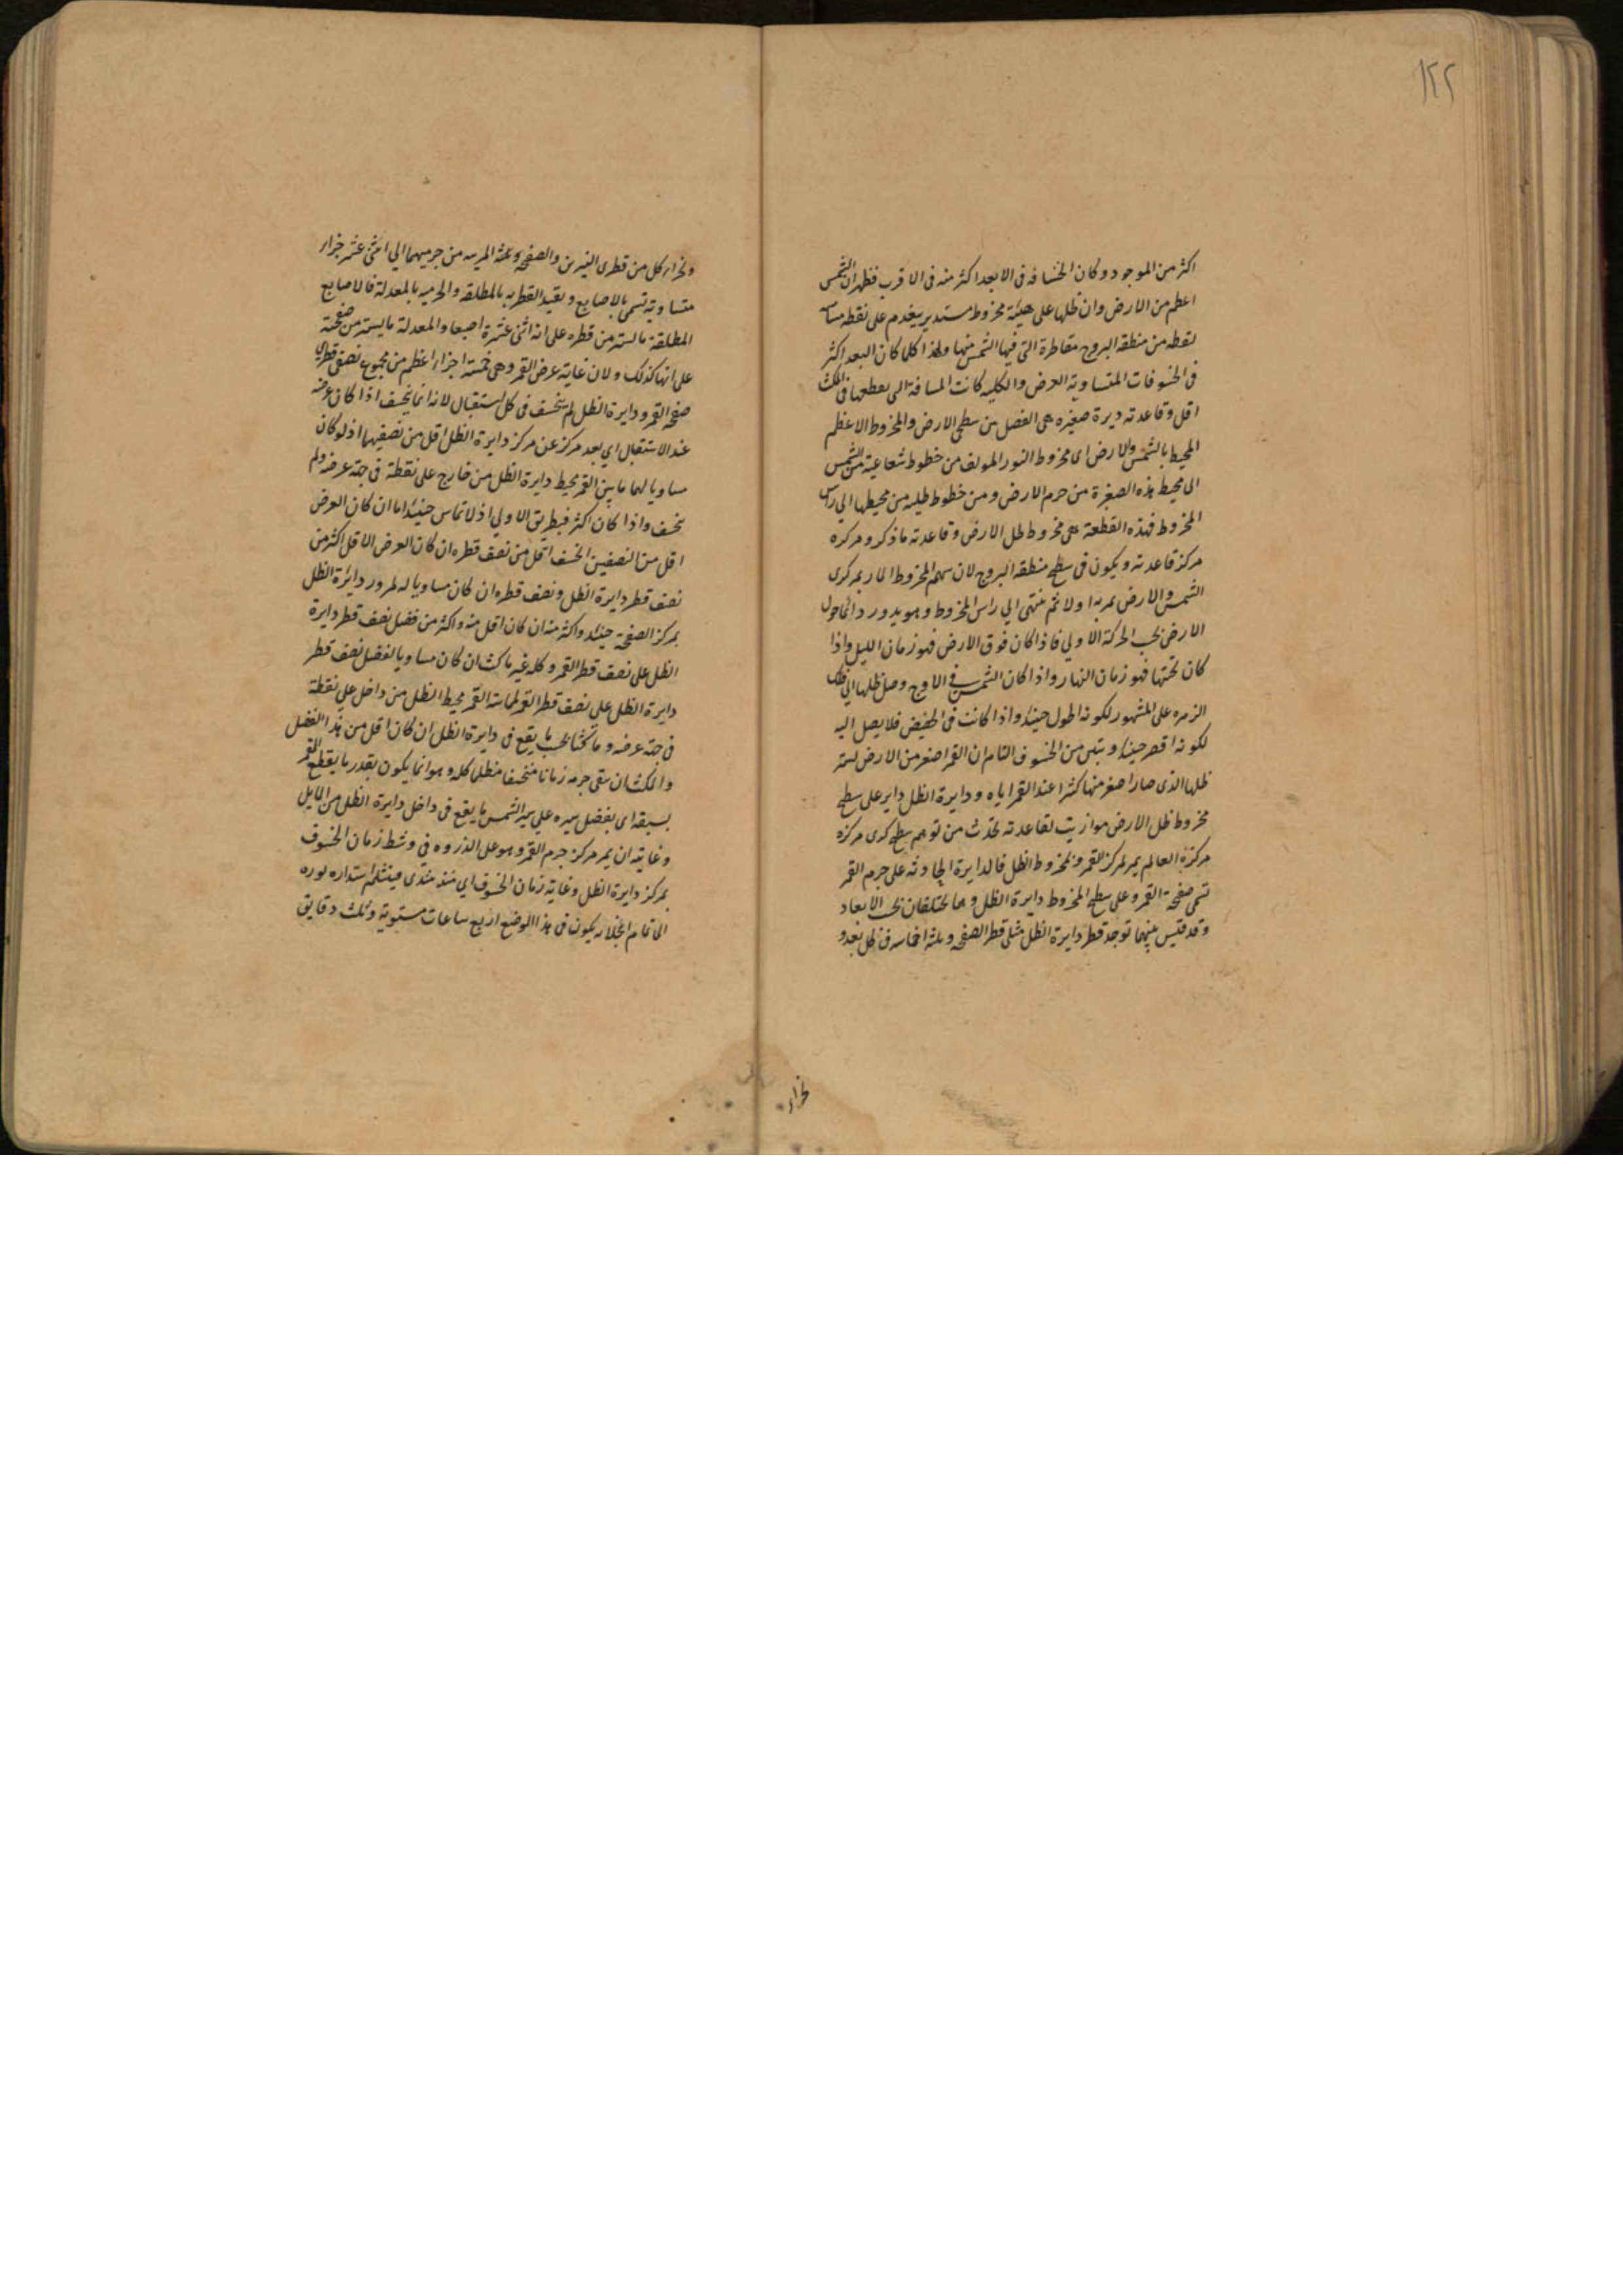 ١٢٢
اكثر من الموجود وكان انخسافه فى الابعد اكثر منه فى الاقرب فظهر ان الشمس
اعظم من الارض وان ظلها على هيئة مخروط مستدير ينخدم على نقطه
نقطه من منطقه البروج مقاطرة التى فيها الشمس منها ولهذا كلما كان البعد اكثر
فى الخسوفات المتساوية العرض والكليه كانت المسافة التى يقطعها فى المكث
اقل وقاعدته ديرة صغيره هى الفصل من سطحى الارض والمخروط الاعظم
المحيط بالشمس والارض اى مخروط النور المولف من خطوط شعاعية من الشمس
الى محيط هذه الصغيرة من جرم الارض ومن خطوط ظليه من محيطها الي راس
المخروط فهذه القطعة هى مخروط ظل الارض وقاعدته ما ذكر ومركزه
مركز قاعدته ويكون فى سطح منطقه البروج لان سهم المخروط المار بمركزى
الشمس والارض يمر به اولا ثم ينتهى الي راس المخروط وهو يدور دائما حول
الارض بحسب الحركة الاولي فاذا كان فوق الارض فهو زمان الليل واذا
كان تحتها فهو زمان النهار واذا كان الشمس فى الاوج وصل ظلها الي فلك
الزهره على المشهور لكونه اطول حينئذ واذا كانت فى الحضيض فلا يصل اليه
لكونه اقصر حينئذ وتبين من الخسوف التام ان القمر اصغر من الارض لستره
ظلها الذى صار اصغر منها كثيرا عند القمر اياه ودايرة الظل داير على سطح
مخروط ظل الارض موازيت لقاعدته تحدث من توهم سطح كرى مركزه
مركزه العالم يمر بمركز القمر وبمخروط الظل فالدايرة الحادثه على جرم القمر
تسمى صفحة القمر وعلى سطح المخروط دايرة الظل وهما تختلفان بحسب الابعاد
وقد قيس بينهما توجد قطر دايرة الظل مثلى قطر الصفحه وثلثة اخماسه فى كل بعد و
نجزاء
ونجزاء كل من قطرى النيرين والصفحه وثلثة المريه من جرميهما الي اثنى عشر جزاء
متساوية تسمى بالاصابع وتقيد القطريه بالمطلقه والجرميه بالمعدلة فالاصابع
المطلقة ما لستر من قطره على انه اثنى عشرة اصبعا والمعدلة ما يستتر من صفحته
على انها كذلك ولان غاية عرض القمر وهى خمسة اجزاء اعظم من مجموع نصفى قطرى
صفحة القمر ودايرة الظل لم ينخسف فى كل استقبال لانه انما ينخسف اذا كان عرضه
عند الاستقبال اي بعد مركزه عن مركز دايرة الظل اقل من نصفيهما اذ لو كان
مساويا لهما ماس القمر محيط دايرة الظل من خارج على نقطة فى جهة عرضه ولم
ينخسف واذا كان اكثر فبطريق الاولي اذ لا تماس حينئذ اما ان كان العرض
اقل من النصفين انخسف اقل من نصف قطره ان كان العرض الاقل اكثر من
نصف قطر دايرة الظل ونصف قطره ان كان مساويا له لمرور دائرة الظل
بمركز الصفحة حينئذ واكثر منه ان كان اقل منه واكثر من فضل نصف قطر دايرة
الظل على نصف قطر القمر وكله غير ماكث ان كان مساويا لفضل نصف قطر
دايرة الظل على نصف قطر القمر لمماسة القمر محيط الظل من داخل على نقطة
فى جهة عرضه وماكثا بحسب ما يقع فى دايرة الظل ان كان اقل من هذا الفضل
والمكث ان يبقى جرمه زمانا منخسفا مظلما كله وهو انما يكون بقدر ما يقطع القمر
بسبقه اى بفضل سيره علي سير الشمس ما يقع فى داخل دايرة الظل من المايل
وغايته ان يمر مركز جرم القمر وهو على الذروه فى وسط زمان الخسوف
بمركز دايرة الظل وغاية زمان الخسوف اي منذ مبتدى فينثلم استداره نوره
الى تمام انجلائه يكون فى هذا الوضع اربع ساعات مستوية وثلث دقايق